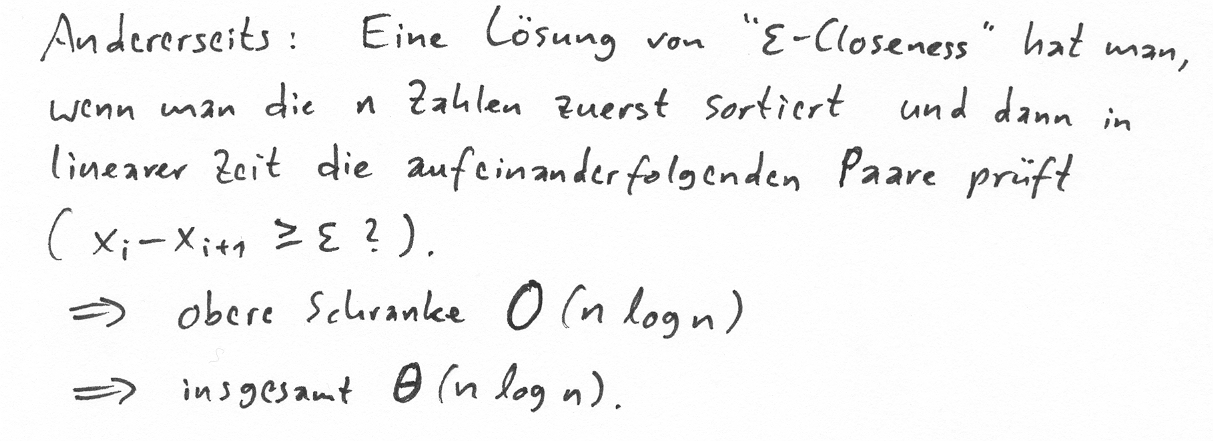 Andererseits: Eine Lösung von "ε-Closeness" hat man,
wenn man die n Zahlen zuerst sortiert und dann in
linearer Zeit die aufeinanderfolgenden Paare prüft
( x_i - x_{i+1} ≥ ε ? ).
⇒ obere Schranke O(n log n)
⇒ insgesamt Θ(n log n).